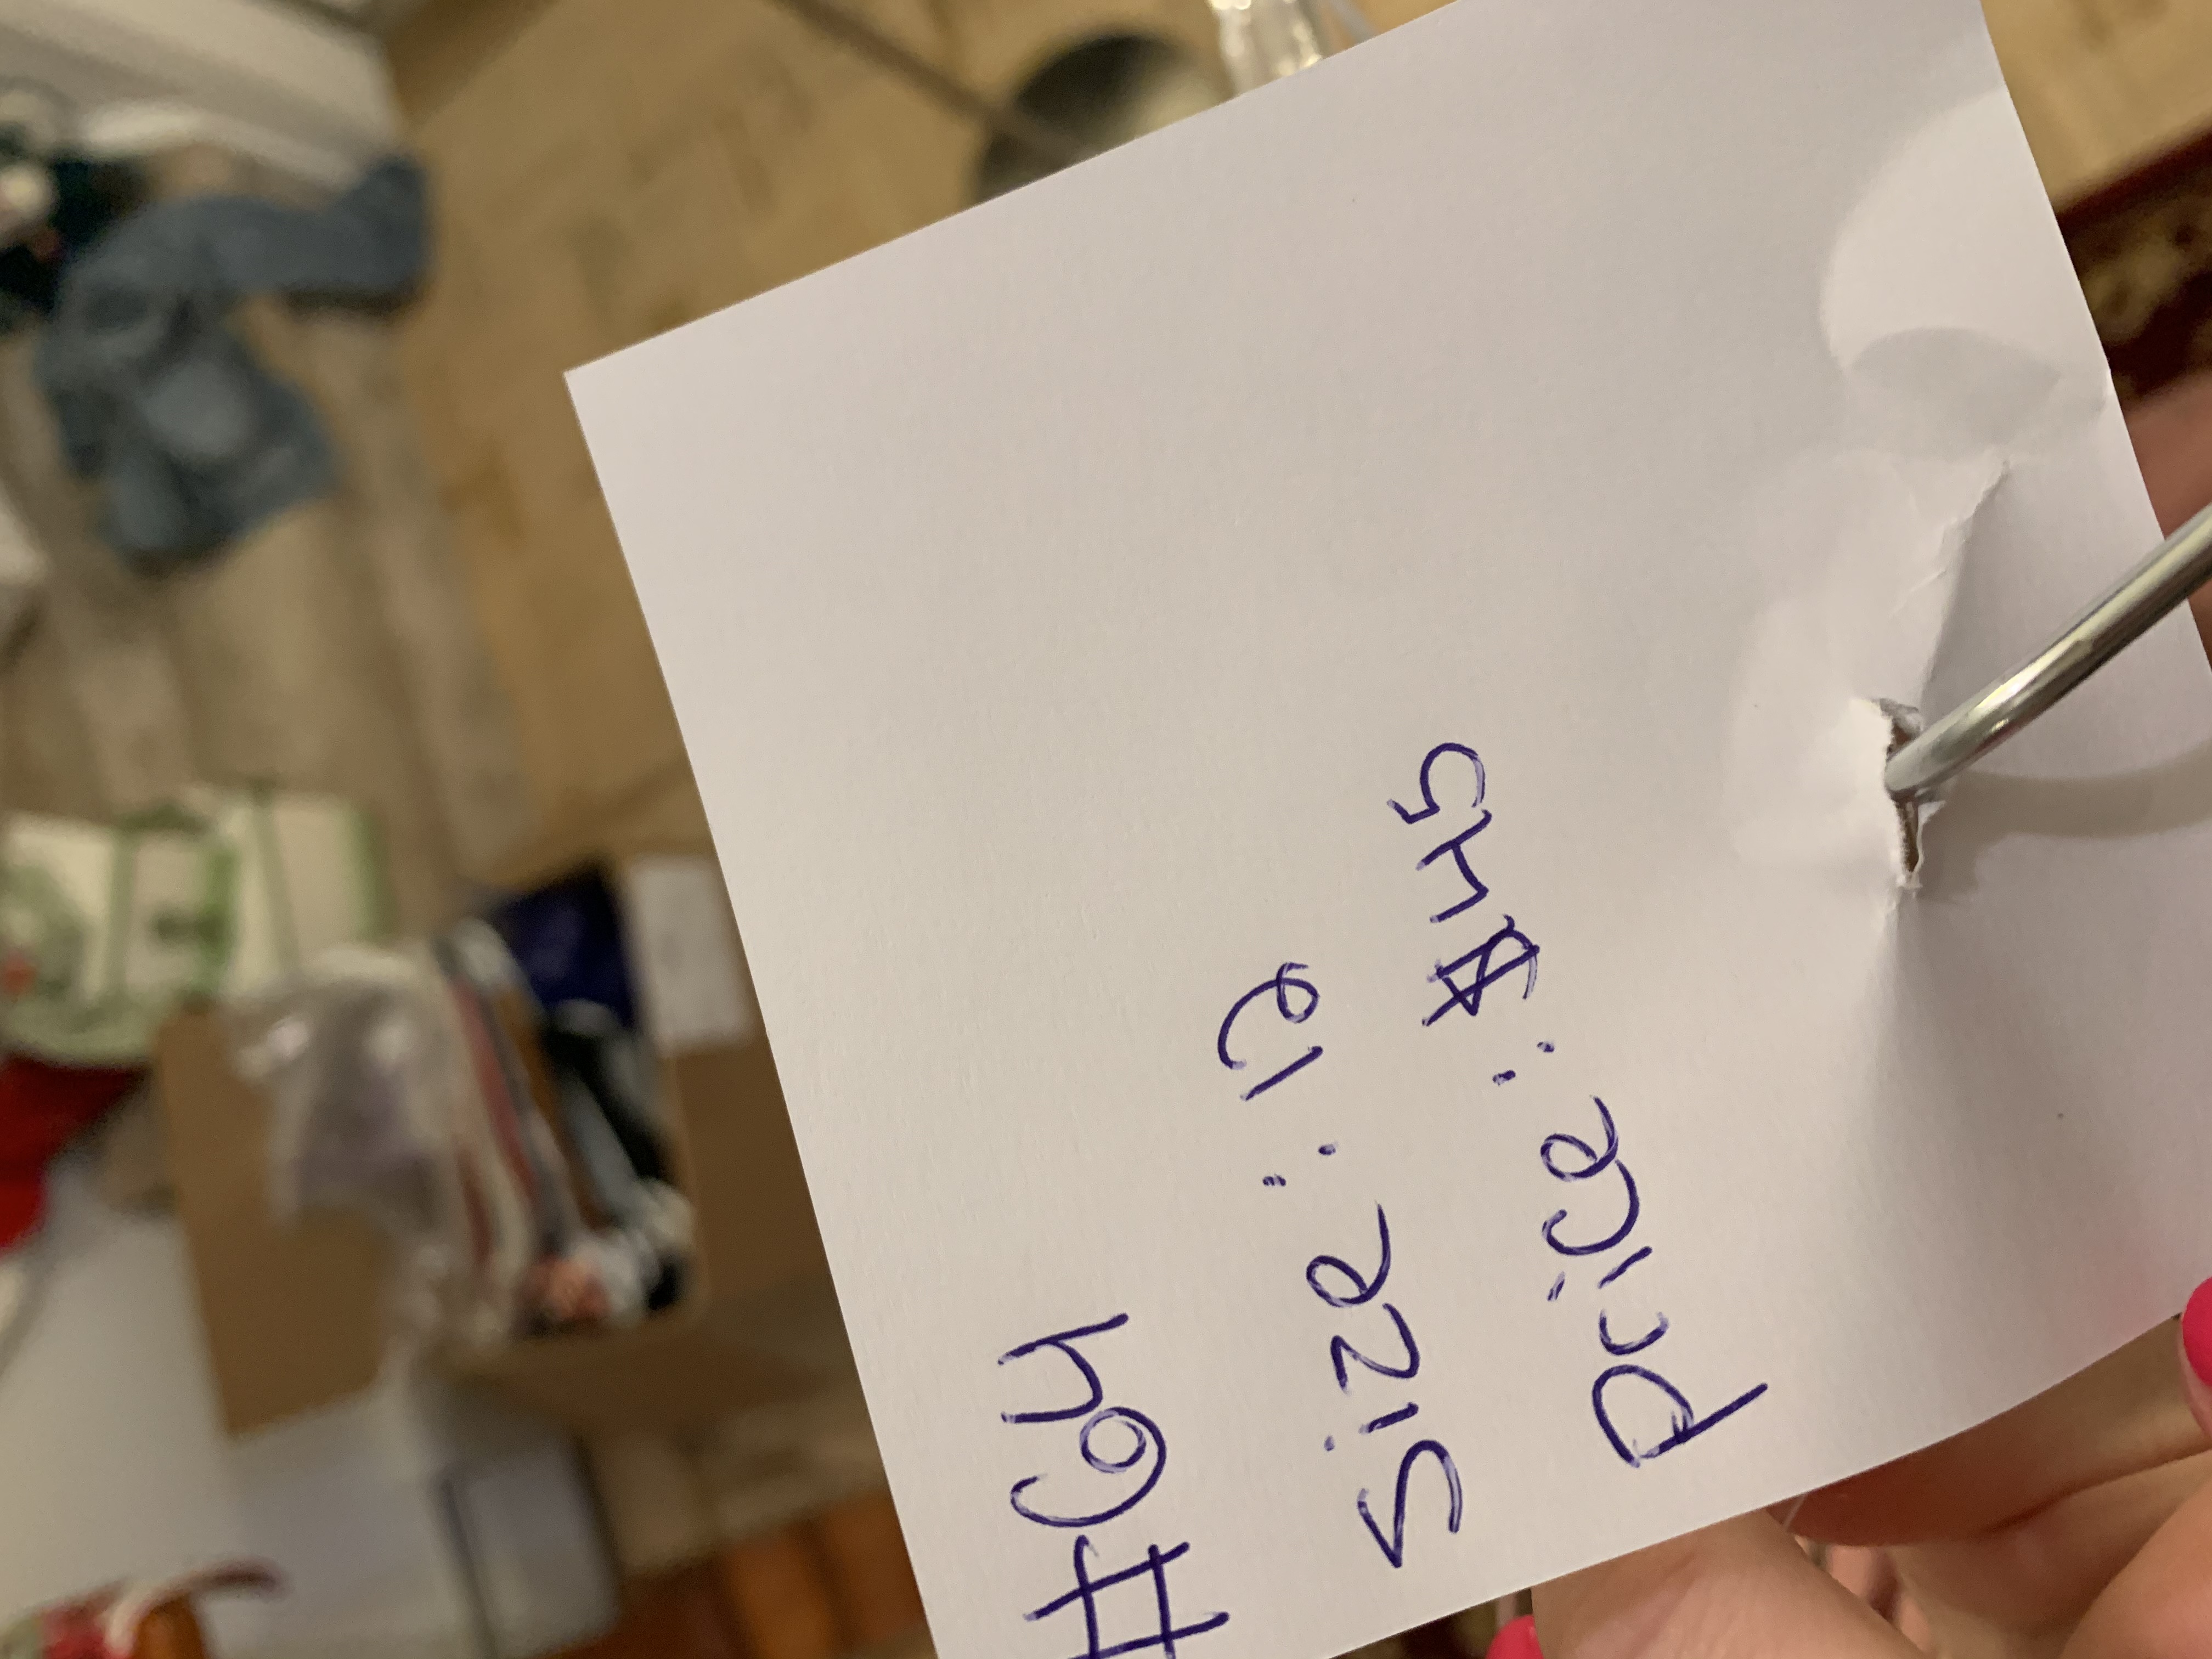 #64
Size: 12
Price: $45